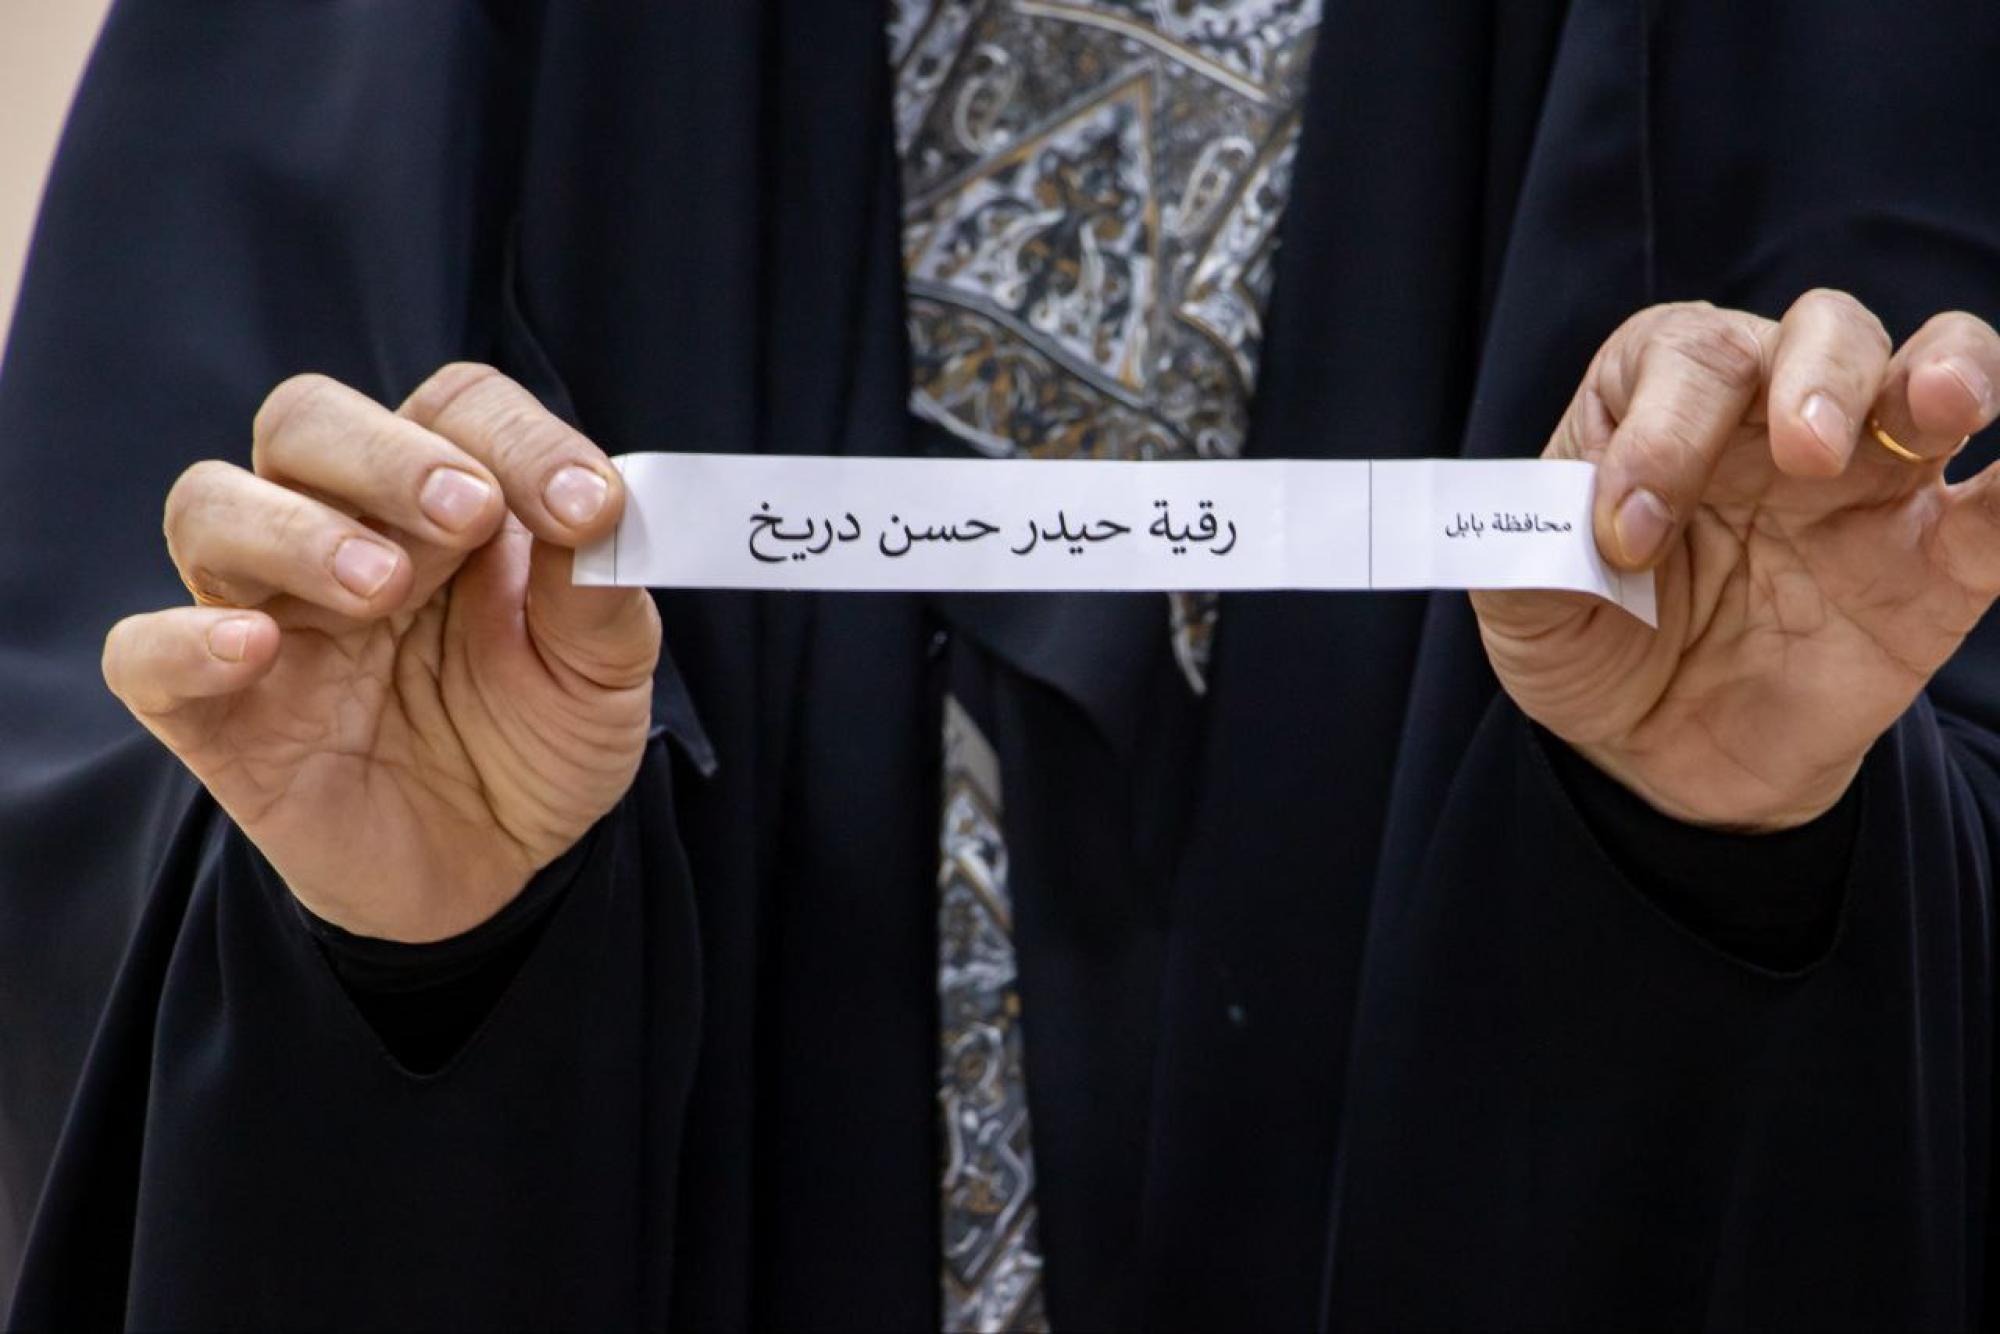 محافظة بابل
رقية حيدر حسن دريخ